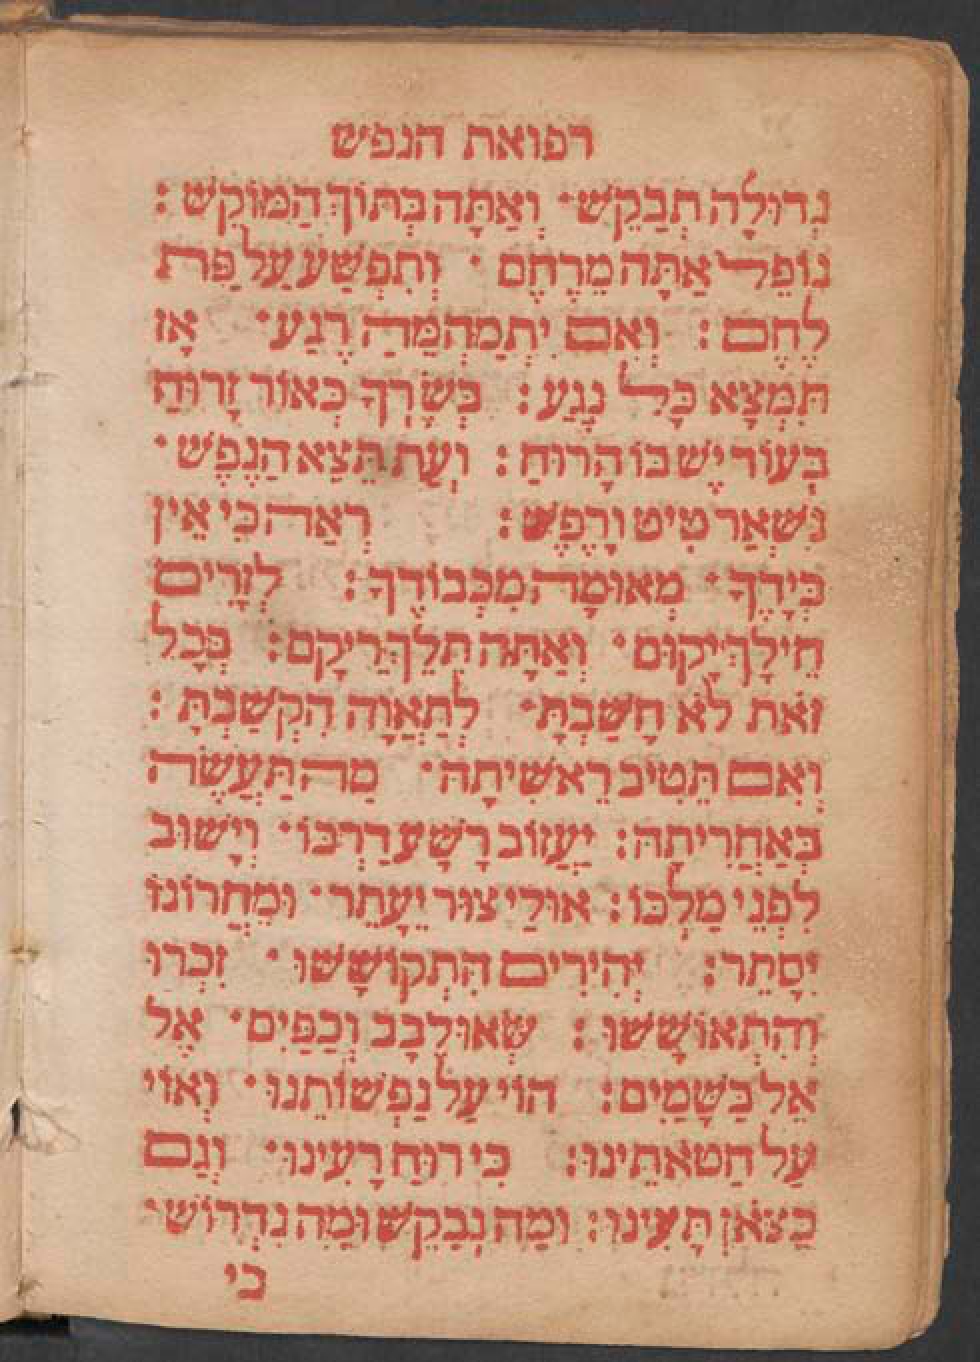 רפואת הנפש
גְדוּלָה תְבַקֵשׁ· וְאַתָּה בְּתוֹךְ הַמּוֹקֵשׁ:
נוֹפֵל אַתָּה מֵרֶחֶם · וְתִפְשַׁע עַל פַּת
לֶחֶם: וְאִם יִתְמַהְמַהּ רֶגַע· אָז
תִּמְצָא כָּל נֶגַע: בְּשָׂרְךָ כְּאוֹר זָרוּחַ
בְּעוֹד יֶשׁ בּוֹ הָרוּחַ: וְעֵת תֵּצֵא הַנֶּפֶשׁ·
נִשְׁאַר טִיט וָרֶפֶשׁ: רְאֵה כִּי אֵין
בְּיָדֶךָ· מְאוּמָה מִכְּבוֹדֶךָ: לְזָרִים
חֵילְךָ יָקוּם· וְאַתָּה תֵלֵךְ רֵיקָם: בְּכָל
זֹאת לֹא חָשַׁבְתָּ· לְתַאֲוָה הִקְשַׁבְתָּ:
וְאִם תֵּטִיב רֵאשִׁיתָהּ· מַה תַּעֲשֶׂה
בְּאַחֲרִיתָהּ: יַעֲזוֹב רָשָׁע דַּרְכּוֹ· וְיָשׁוּב
לִפְנֵי מַלְכּוֹ: אוּלַי צוּר יֵעָתֵר· וּמֵחֲרוֹנוֹ
יִסָּתֵר: יְהִירִים הִתְקוֹשָׁשׁוּ· זִכְרוּ
וְהִתְאוֹשָׁשׁוּ: שְׂאוּ לֵבָב וְכַפַּיִם· אֶל
אֵל בַּשָּׁמַיִם: הוֹי עַל נַפְשׁוֹתֵנוּ· וְאוֹי
עַל חַטֹּאתֵינוּ: כִּי רוּחַ רָעִינוּ· וְגַם
כַּצֹּאן תָּעִינוּ: וּמַה נְּבַקֵּשׁ וּמַה נִדְרוֹשׁ·
כי